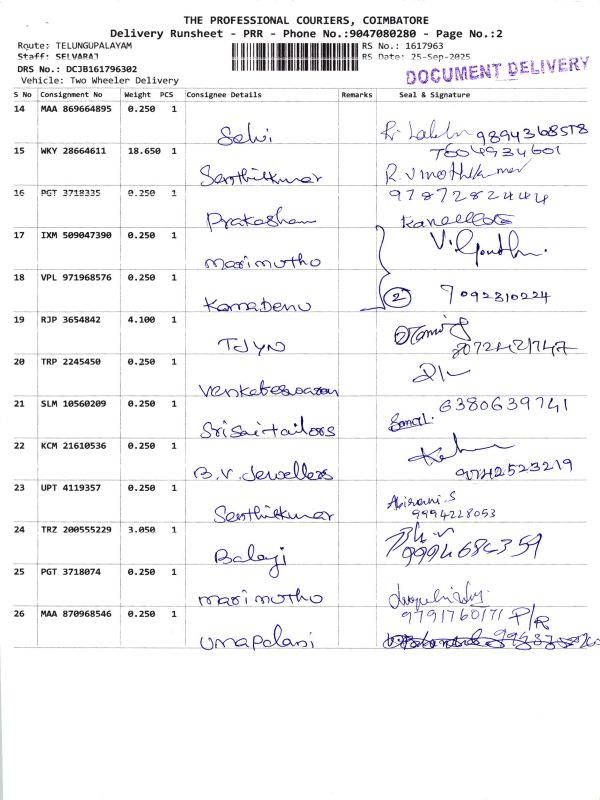 THE PROFESSIONAL COURIERS, COIMBATORE
Delivery Runsheet - PRR - Phone No.:9047080280 - Page No.:2
Route: TELUNGUPALAYAM RS No.: 1617963
Staff: SELVARAJ RS Date: 25-Sep-2025
DRS No.: DCJB161796302 DOCUMENT DELIVERY
Vehicle: Two Wheeler Delivery
S No Consignment No Weight PCS Consignee Details Remarks Seal & Signature
14 MAA 869664895 0.250 1
Selvi 9894368518
7604934601
15 WKY 28664611 18.650 1
Senthilkumar R.Vmothikumar
16 PGT 3718335 0.250 1 9787282444
Prakasham
17 IXM 509047390 0.250 1
marimutho
18 VPL 971968576 0.250 1
Kamadenu 2 7092310224
19 RJP 3654842 4.100 1
TJYN 8072421747
20 TRP 2245450 0.250 1
Venkateswaran
21 SLM 10560209 0.250 1 6380639741
Srisaitailors
22 KCM 21610536 0.250 1
B.V. Jewellers 9742523219
23 UPT 4119357 0.250 1 Abirami.S
Senthilkumar 9994228053
24 TRZ 200555229 3.050 1
Balaji 9994684359
25 PGT 3718074 0.250 1
marimutho
26 MAA 870968546 0.250 1 9791760171 P/R
Umapalani